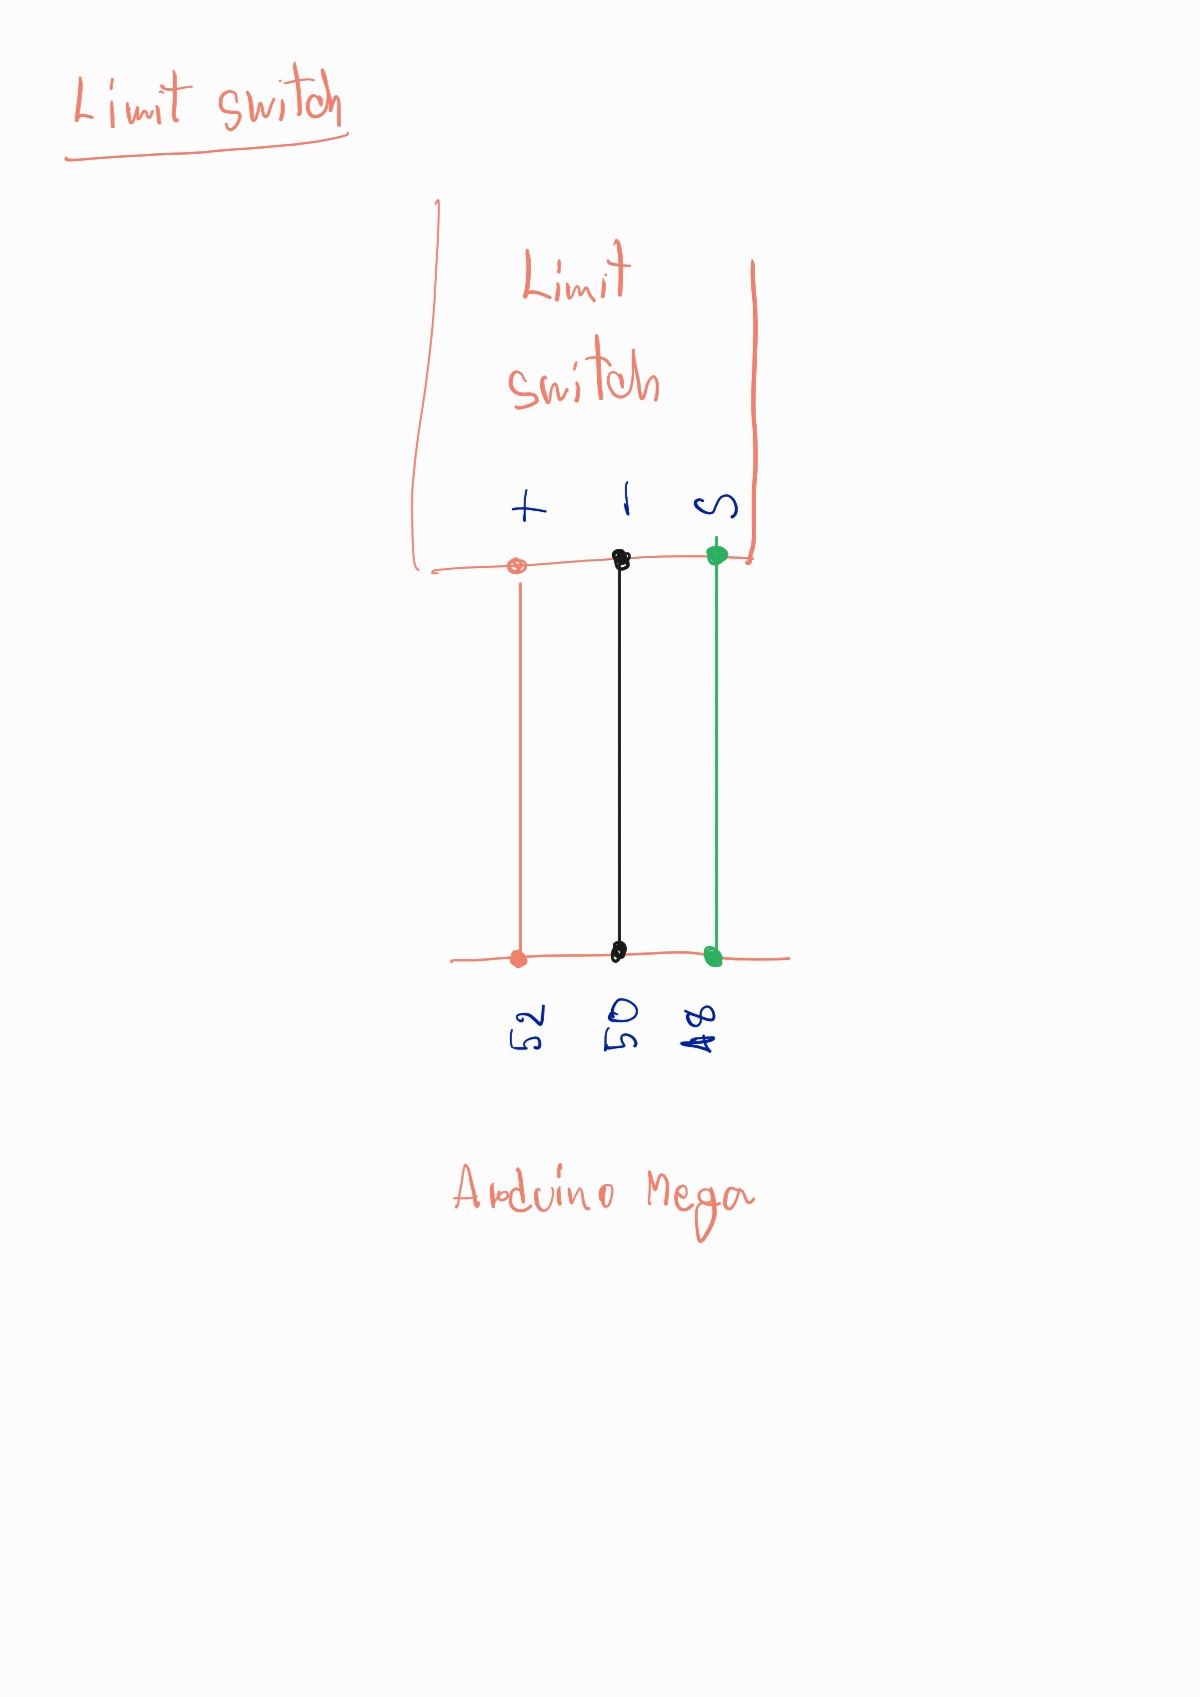 Limit switch
Limit
switch
+ - S
52 50 48
Arduino Mega